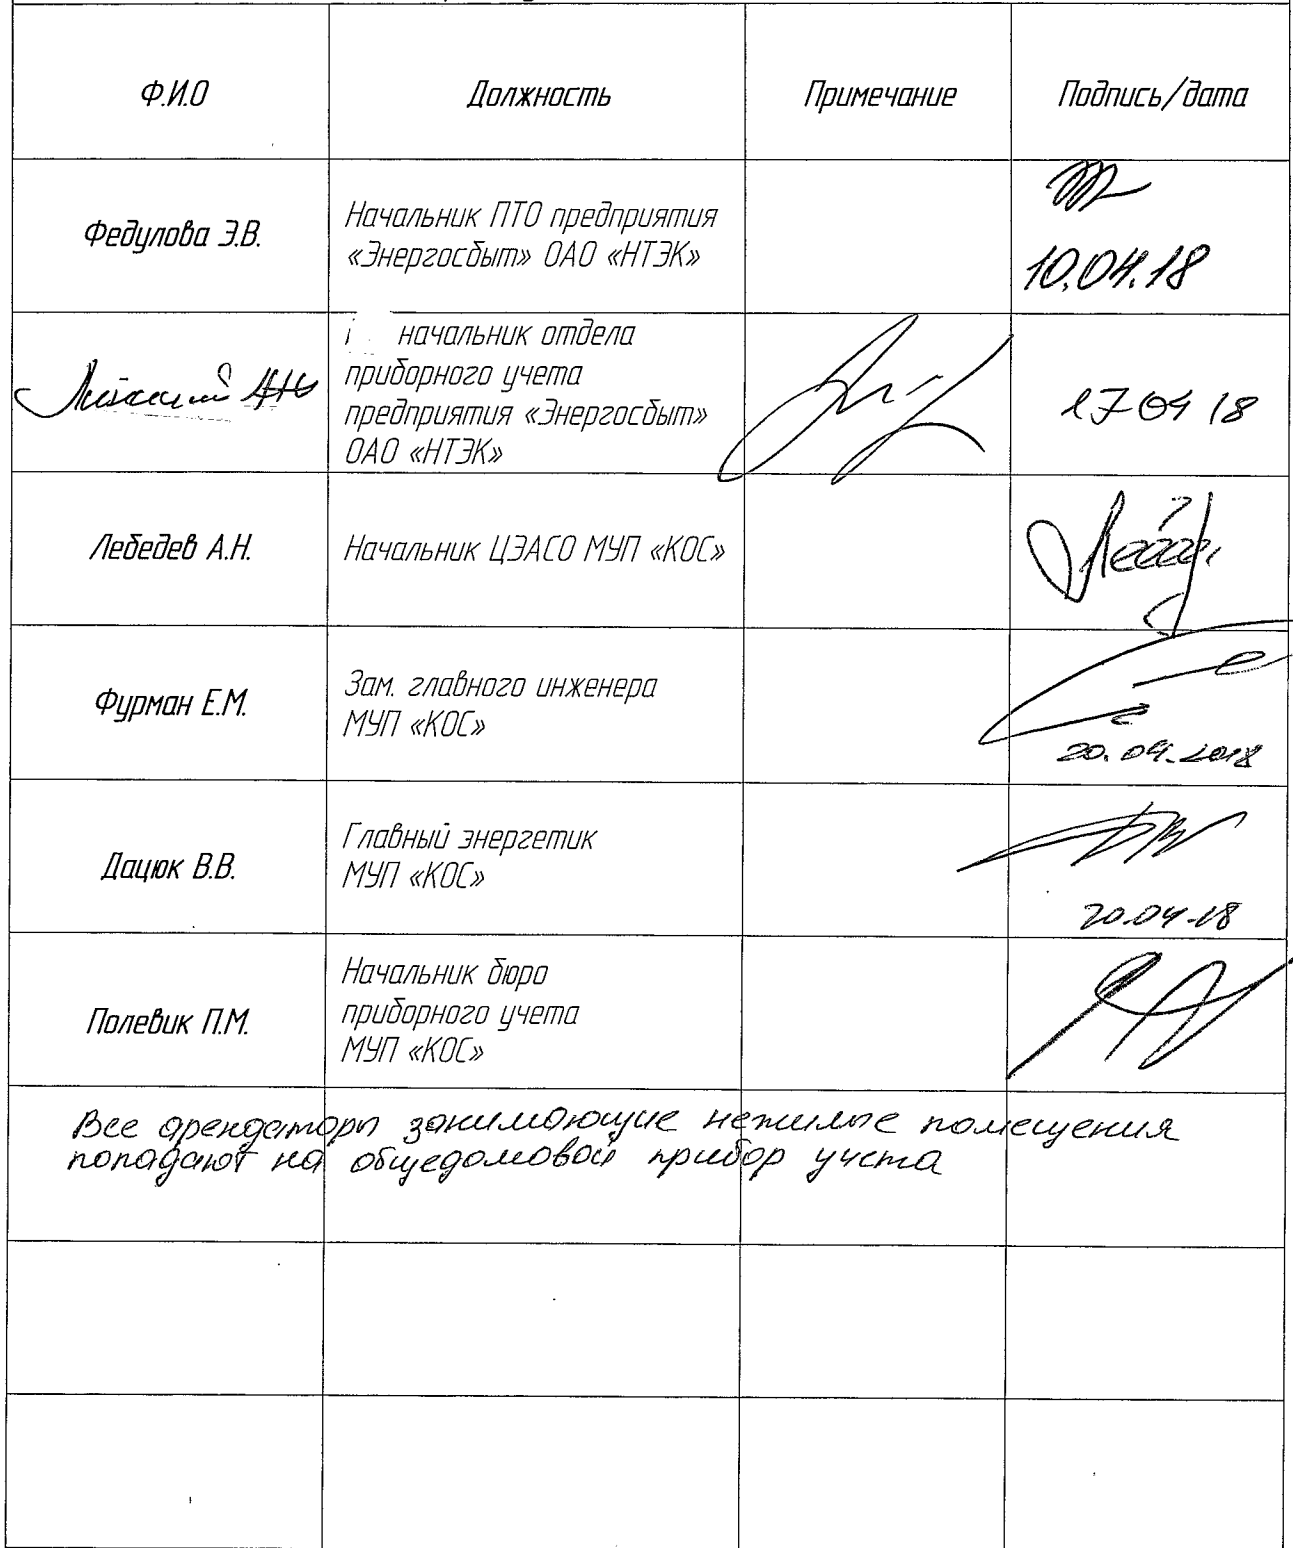 Ф.И.О
Должность
Примечание
Подпись/дата
Федулова Э.В.
Начальник ПТО предприятия
«Энергосбыт» ОАО «НТЭК»
10.04.18
начальник отдела
приборного учета
предприятия «Энергосбыт»
ОАО «НТЭК»
17 04 18
Лебедев А.Н.
Начальник ЦЭАСО МУП «КОС»
Фурман Е.М.
Зам. главного инженера
МУП «КОС»
20.04.2018
Дацюк В.В.
Главный энергетик
МУП «КОС»
20.04.18
Полевик П.М.
Начальник бюро
приборного учета
МУП «КОС»
Все арендаторы занимающие нежилые помещения
попадают на общедомовой прибор учета